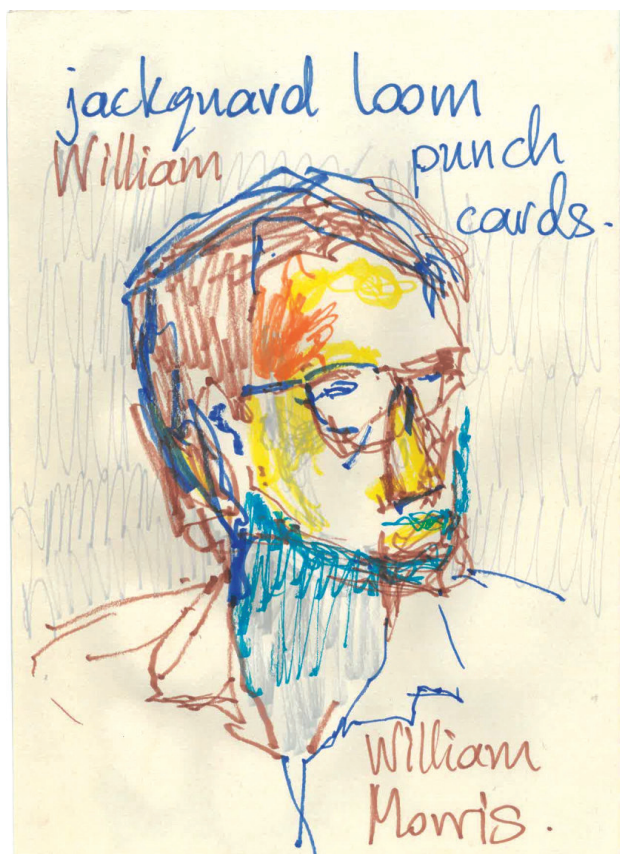 jackquard loom
William punch
cards.
William
Morris.